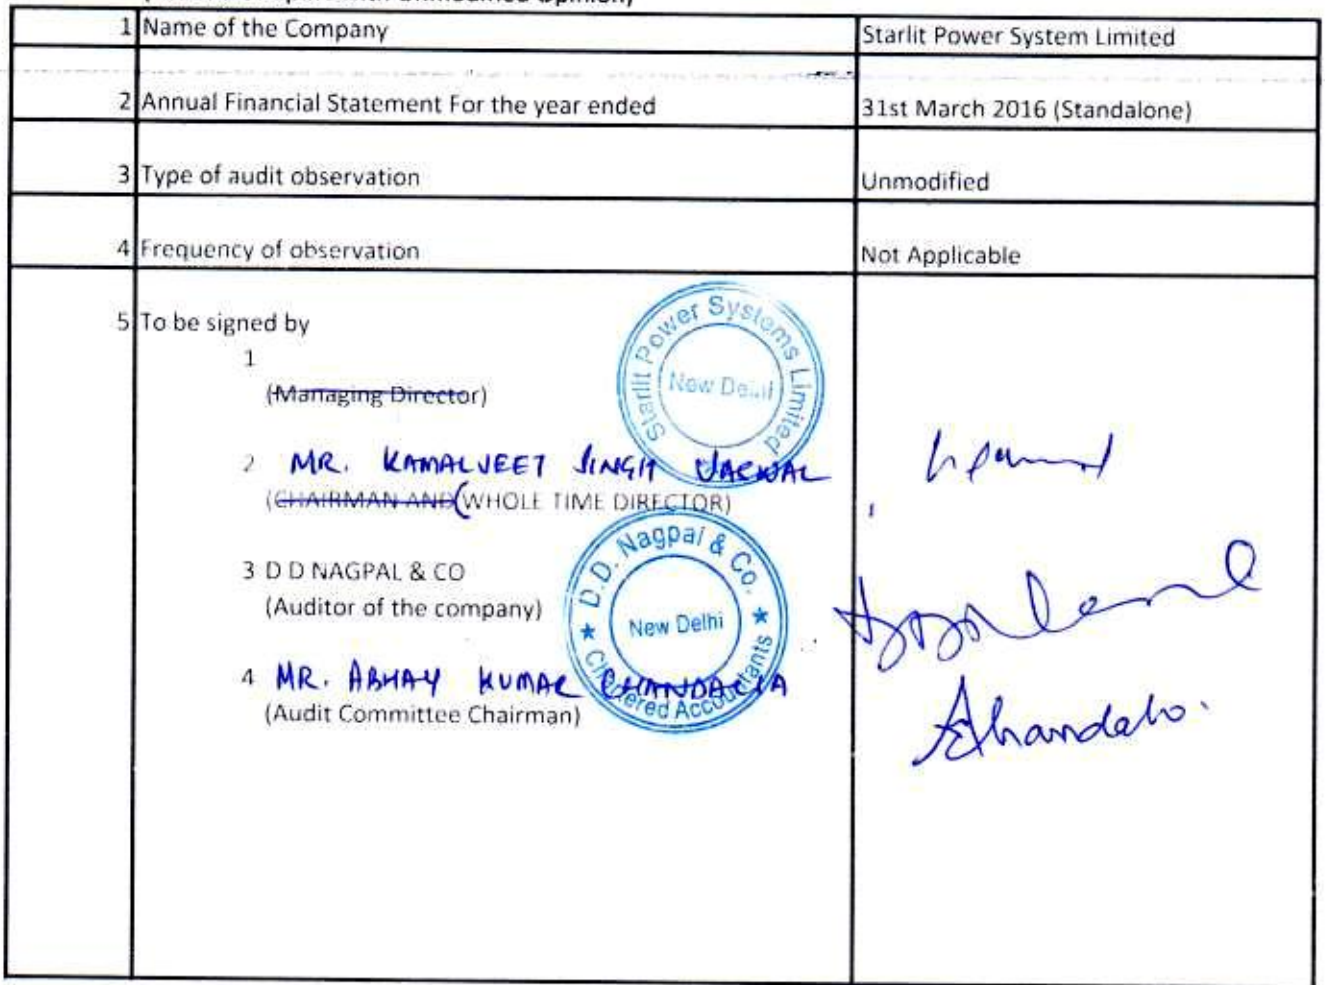 1 Name of the Company Starlit Power System Limited
2 Annual Financial Statement For the year ended 31st March 2016 (Standalone)
3 Type of audit observation Unmodified
4 Frequency of observation Not Applicable
5 To be signed by
1
(Managing Director)
Starlit Power Systems Limited
New Delhi
2 MR. KAMALJEET SINGH JASWAL
(CHAIRMAN AND (WHOLE TIME DIRECTOR)
3 D D NAGPAL & CO
(Auditor of the company)
D.D. Nagpal & Co.
New Delhi
★ Chartered Accountants ★
4 MR. ABHAY KUMAR CHANDALIA
(Audit Committee Chairman)